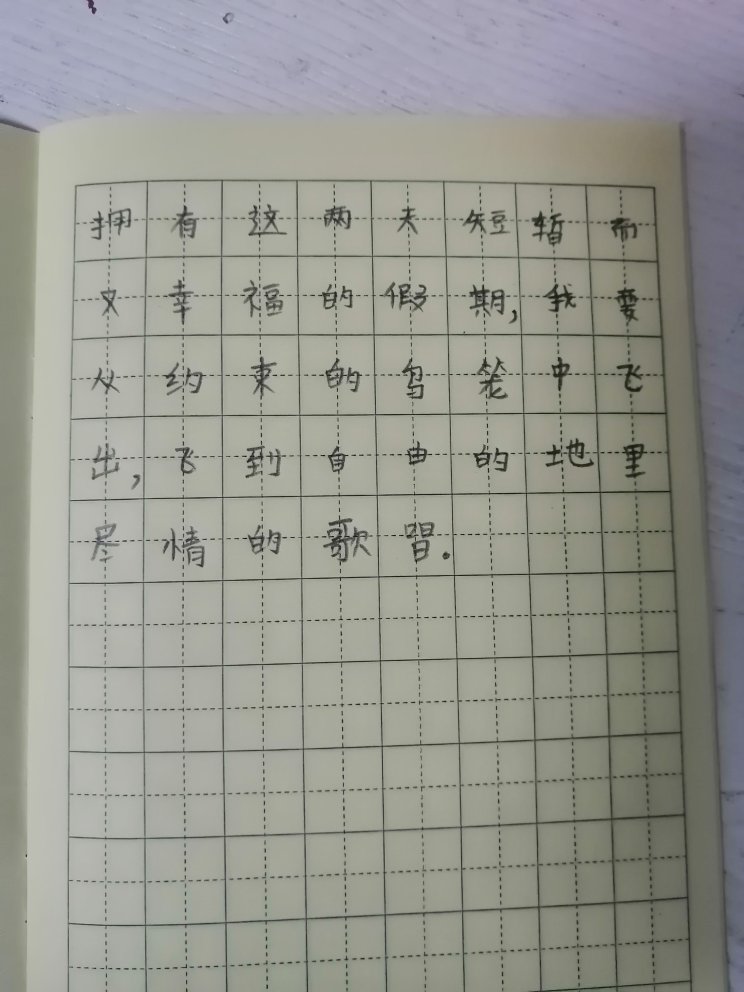 拥有这两天短暂而
又幸福的假期,我要
从约束的鸟笼中飞
出,飞到自由的地里
尽情的歌唱.